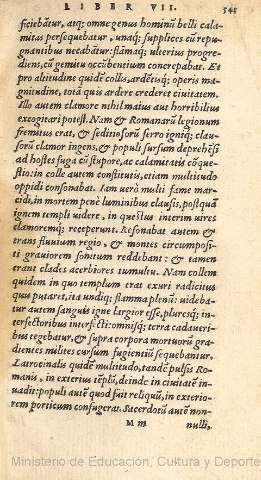 LIBER VII. 545
ficiebātur, atq; omne genus hominū belli cala-
mitas persequebatur, unaq; supplices cū repu-
gnantibus necabātur: flāmaq; ulterius progre-
diens, cū gemitu occūbentium concrepabat. Et
pro altitudine quidē collis, ardētisq; operis ma-
gnitudine, totā quis ardere crederet ciuitatem.
Illo autem clamore nihil maius aut horribilius
excogitari potest. Nam & Romanarū legionum
fremitus erat, & seditiosorū ferro igniq; clau-
sorū clamor ingens, & populi sursum deprehēsi
ad hostes fuga cū stupore, ac calamitatis cōque-
stio: in colle autem constitutis, etiam multitudo
oppidi consonabat. Iam uerò multi fame mar-
cidi, in mortem penè luminibus clausis, postquā
ignem templi uidere, in questus interim uires
clamoremq; receperunt. Resonabat autem &
trans fluuium regio, & montes circumposi-
ti grauiorem sonitum reddebant: & tamen
erant clades acerbiores tumultu. Nam collem
quidem in quo templum erat exuri radicitus
quis putaret, ita undiq; flamma plenū: uideba-
tur autem sanguis igne largior esse, pluresq; in-
terfectoribus interfecti: omnisq; terra cadaueri-
bus tegebatur, & supra corpora mortuorū gra-
dientes milites cursum fugientiū sequebantur.
Latrocinalis quidē multitudo, tandē pulsis Ro-
manis, in exterius tēplū, deinde in ciuitatē in-
uadit: populi autē quod fuit reliquū, in exterio-
rem porticum confugerat. Sacerdotū autē non-
M m nulli,
Ministerio de Educación, Cultura y Deporte